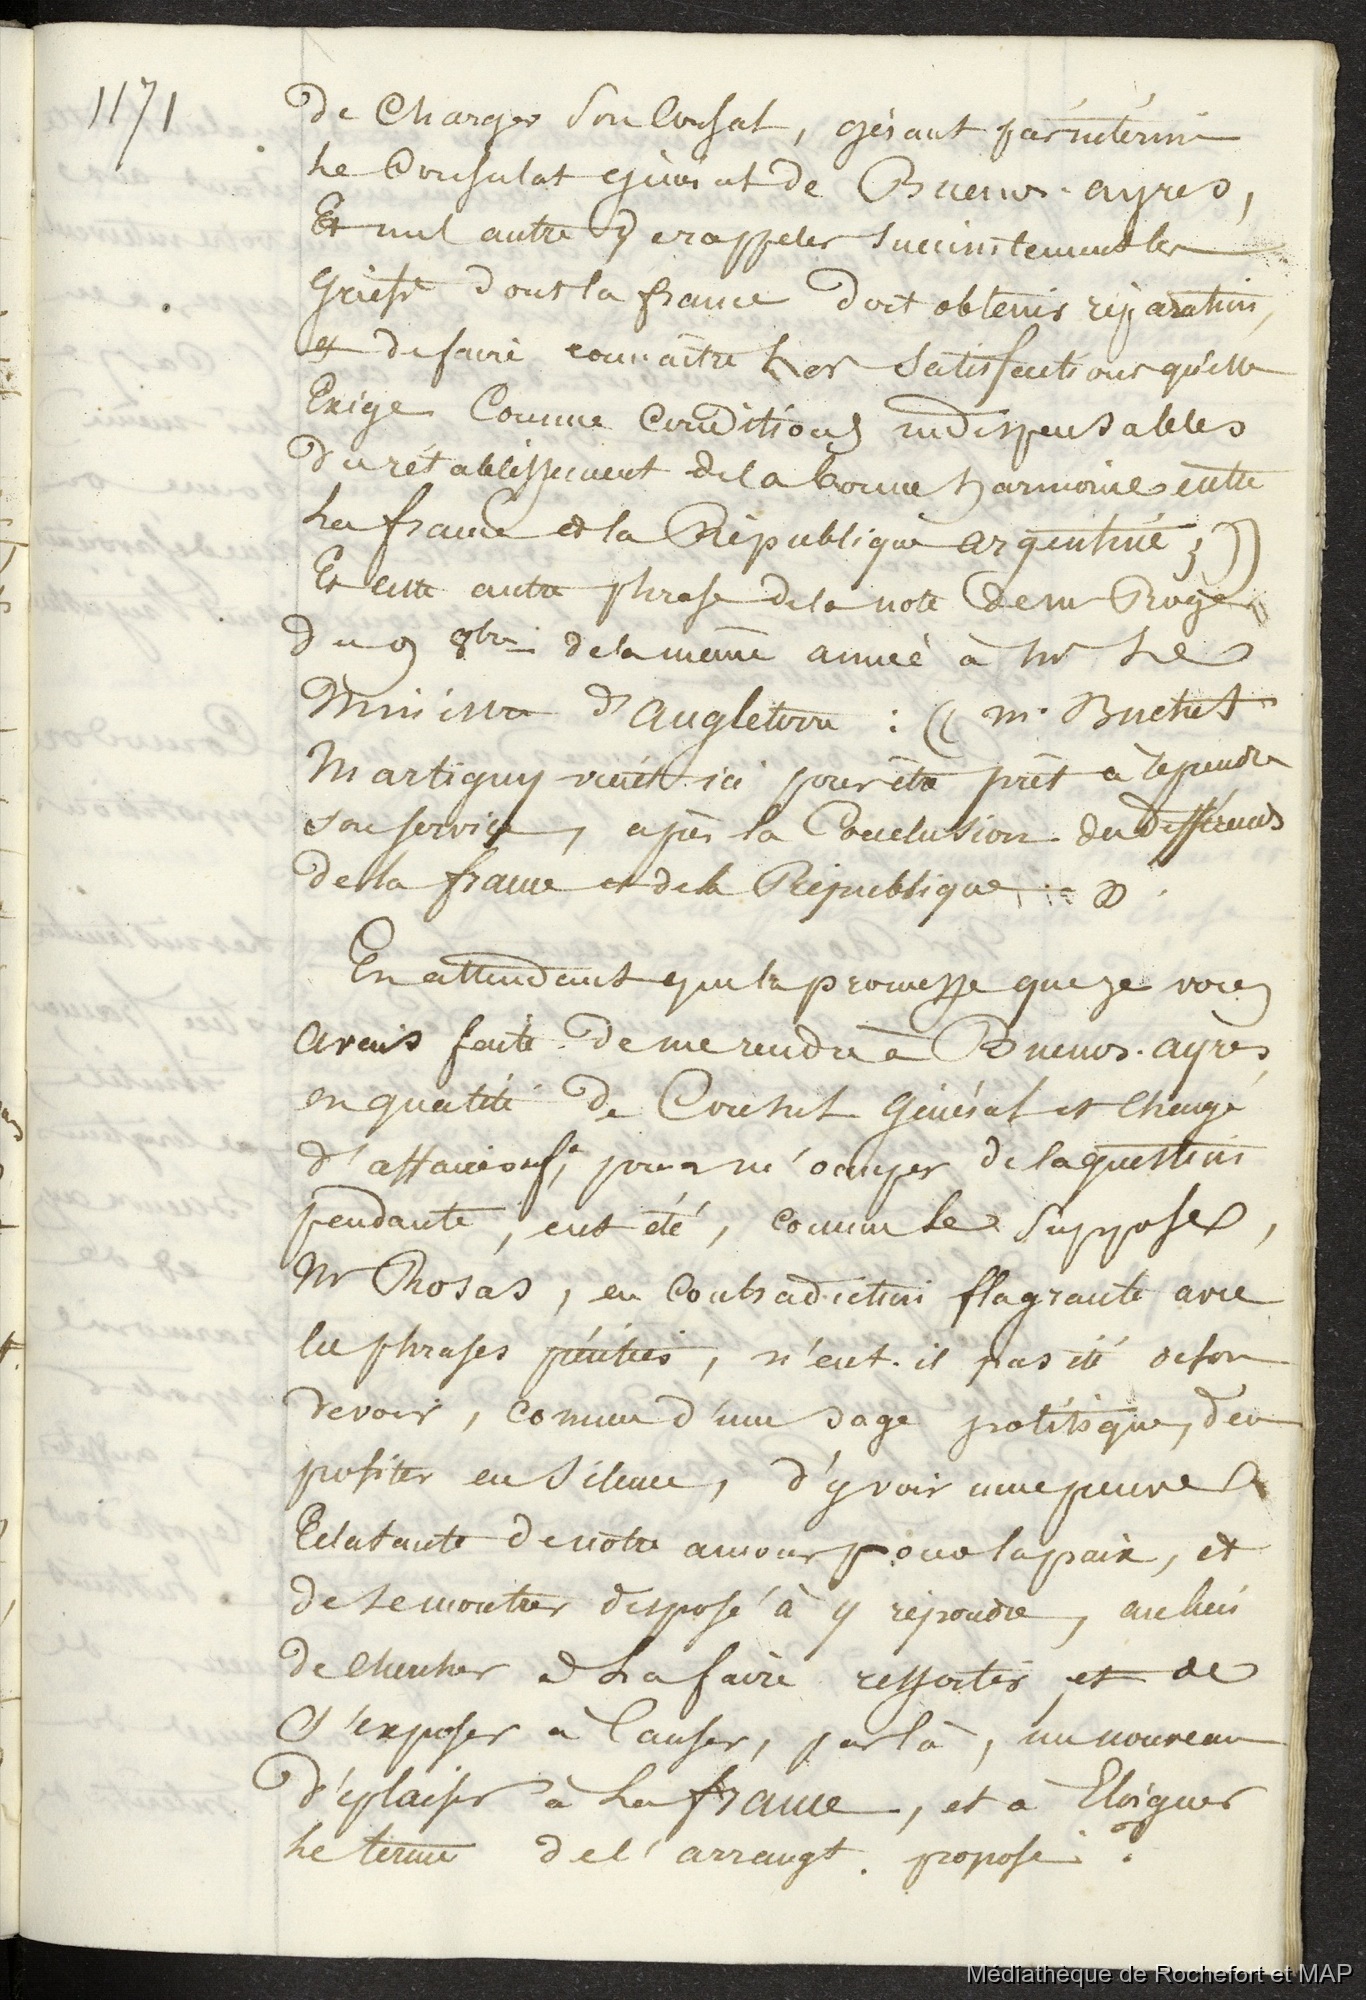 1171
de Charger son Consul, gérant par intérim
Le Consulat général de Buenos-ayres,
Et nul autre d'y rappeler succinctement les
Griefs dont la france doit obtenir réparation,
et de faire connaître Les Satisfactions qu'elle
Exige Comme Conditions indispensables
du rétablissement de la bonne harmonie entre
La france et la République argentine; »
Et cette autre phrase de la note de mr Roger
du 9 8bre de la même année à Mr Le
Ministre d'angleterre : « m. Buchet
Martigny vient ici pour être prêt à reprendre
son service, après la Conclusion du différends
de la france et de la République. »
En attendant que la promesse que je vous
avais faite de me rendre à Buenos-ayres,
en qualité de Consul Général et chargé
d'affaires p. i., pour m'occuper de la question
pendante, eut été, comme le Suppose,
Mr Rosas, en contradiction flagrante avec
les phrases précitées, n'eut-il pas été de son
devoir, comme d'une sage politique, d'en
profiter en Silence, d'y voir une preuve
Eclatante de notre amour pour la paix, et
de se montrer disposé à y répondre, au lieu
de chercher à La faire ressortir et de
s'exposer à Causer, par là, un nouveau
déplaisir à La france, et à Eloigner
Le terme de l'arrangt. proposé ?
Médiathèque de Rochefort et MAP